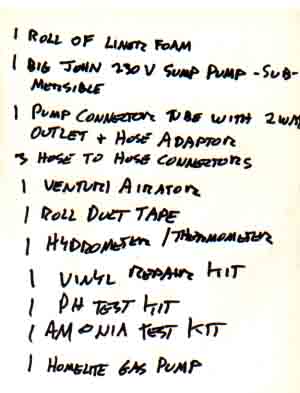 1 ROLL OF LINER FOAM
1 BIG JOHN 230 V SUMP PUMP - SUB-
MERSIBLE
1 PUMP CONNECTOR TUBE WITH 2 WAY
OUTLET + HOSE ADAPTOR
3 HOSE TO HOSE CONNECTORS
1 VENTURI AIRATOR
1 ROLL DUCT TAPE
1 HYDROMETER / THERMOMETER
1 VINYL REPAIR KIT
1 PH TEST KIT
1 AMONIA TEST KIT
1 HOMELITE GAS PUMP